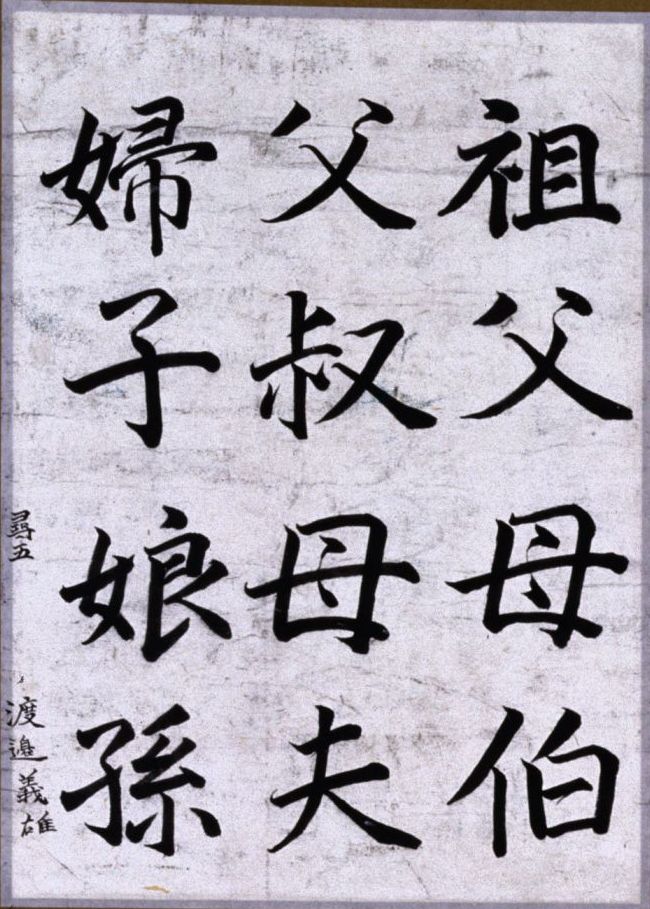 祖父母伯
父叔母夫
婦子娘孫
尋五
渡邉義雄